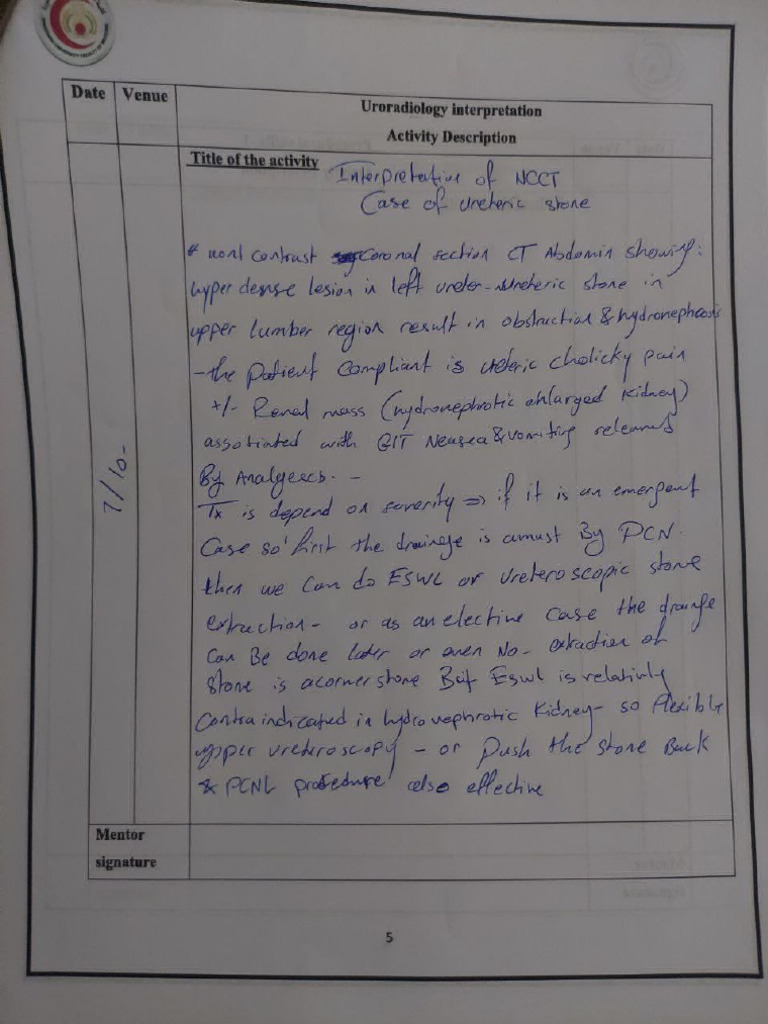 Date Venue
Uroradiology interpretation
Activity Description
Title of the activity Interpretation of NCCT
Case of ureteric stone
# nont contrast coronal section CT Abdomin showing:
hyper dense lesion in left ureter - ureteric stone in
upper lumber region result in obstruction & hydronephrosis
- the patient Compliant is ureteric cholicky pain
+/- Renal mass (hydronephrotic enlarged kidney)
assotiated with GIT Neusea & vomiting
By Analgeecs. -
Tx is depend on severity => if it is an emergent
Case so first the drainge is amust By PCN.
then we can do ESWL or Ureteroscopic stone
extraction - or as an elective case the drainge
can Be done later or even No - extraction of
stone is acornerstone But Eswl is relativly
Contraindicated in hydronephrotic Kidney - so flexible
upper ureteroscopy - or push the stone Back
& PCNL procedure also effective
7/10-
Mentor
signature
5